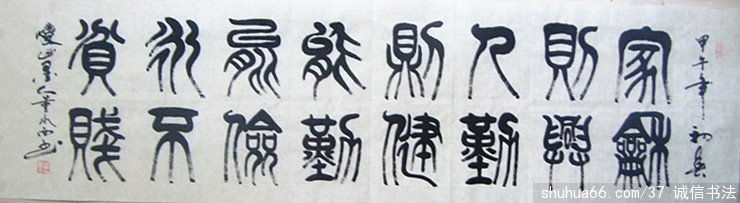 甲午年初
家龢
則興
人勤
則健
能勤
能儉
永不
貧賤
shuhua66.com/37 诚信书法